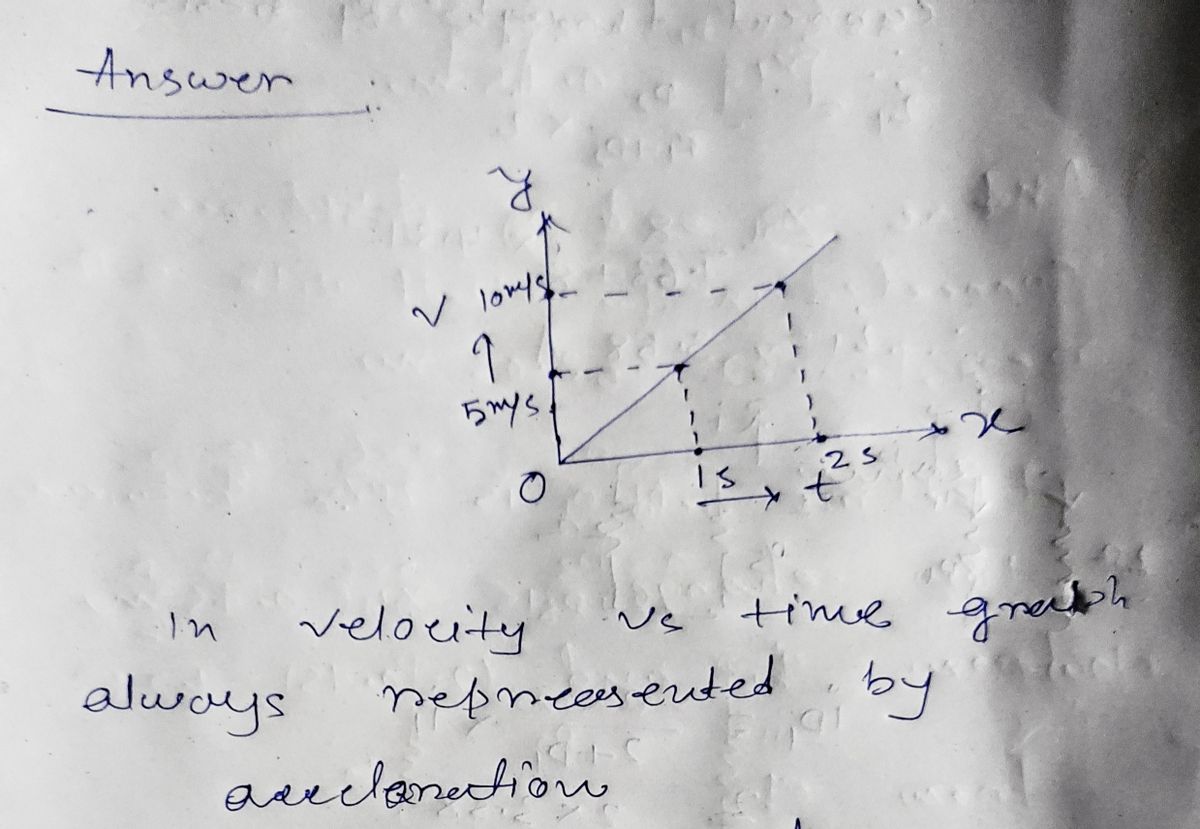 Answer
y
v 10m/s
↑
5m/s
x
O
1s
2s
→ t
In velocity vs time graph
always represented by
acceleration